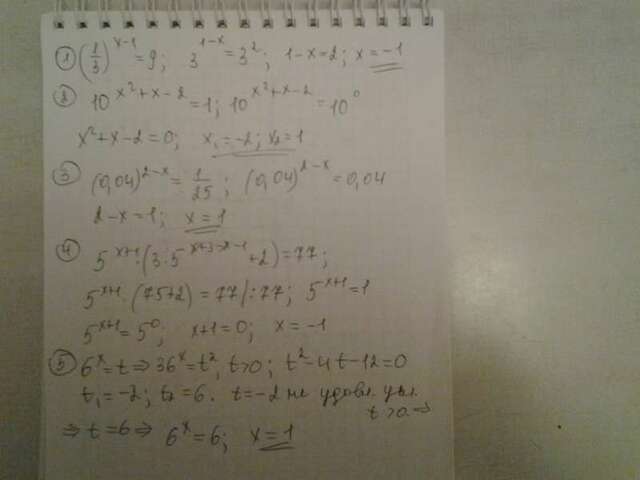 ① (1/3)^(x-1) = 9; 3^(1-x) = 3^2; 1-x=2; x=-1
② 10^(x²+x-2) = 1; 10^(x²+x-2) = 10^0
x²+x-2=0; x₁=-2; x₂=1
③ (0,04)^(2-x) = 1/25; (0,04)^(2-x) = 0,04
2-x=1; x=1
④ 5^(x+1)·(3·5^(x+3-x-1)+2)=77;
5^(x+1)·(75+2)=77 |:77; 5^(x+1)=1
5^(x+1)=5^0; x+1=0; x=-1
⑤ 6^x=t ⇒ 36^x=t², t>0; t²-4t-12=0
t₁=-2; t₂=6. t=-2 не удовл. усл.
t>0 ⇒
⇒ t=6 ⇒ 6^x=6; x=1